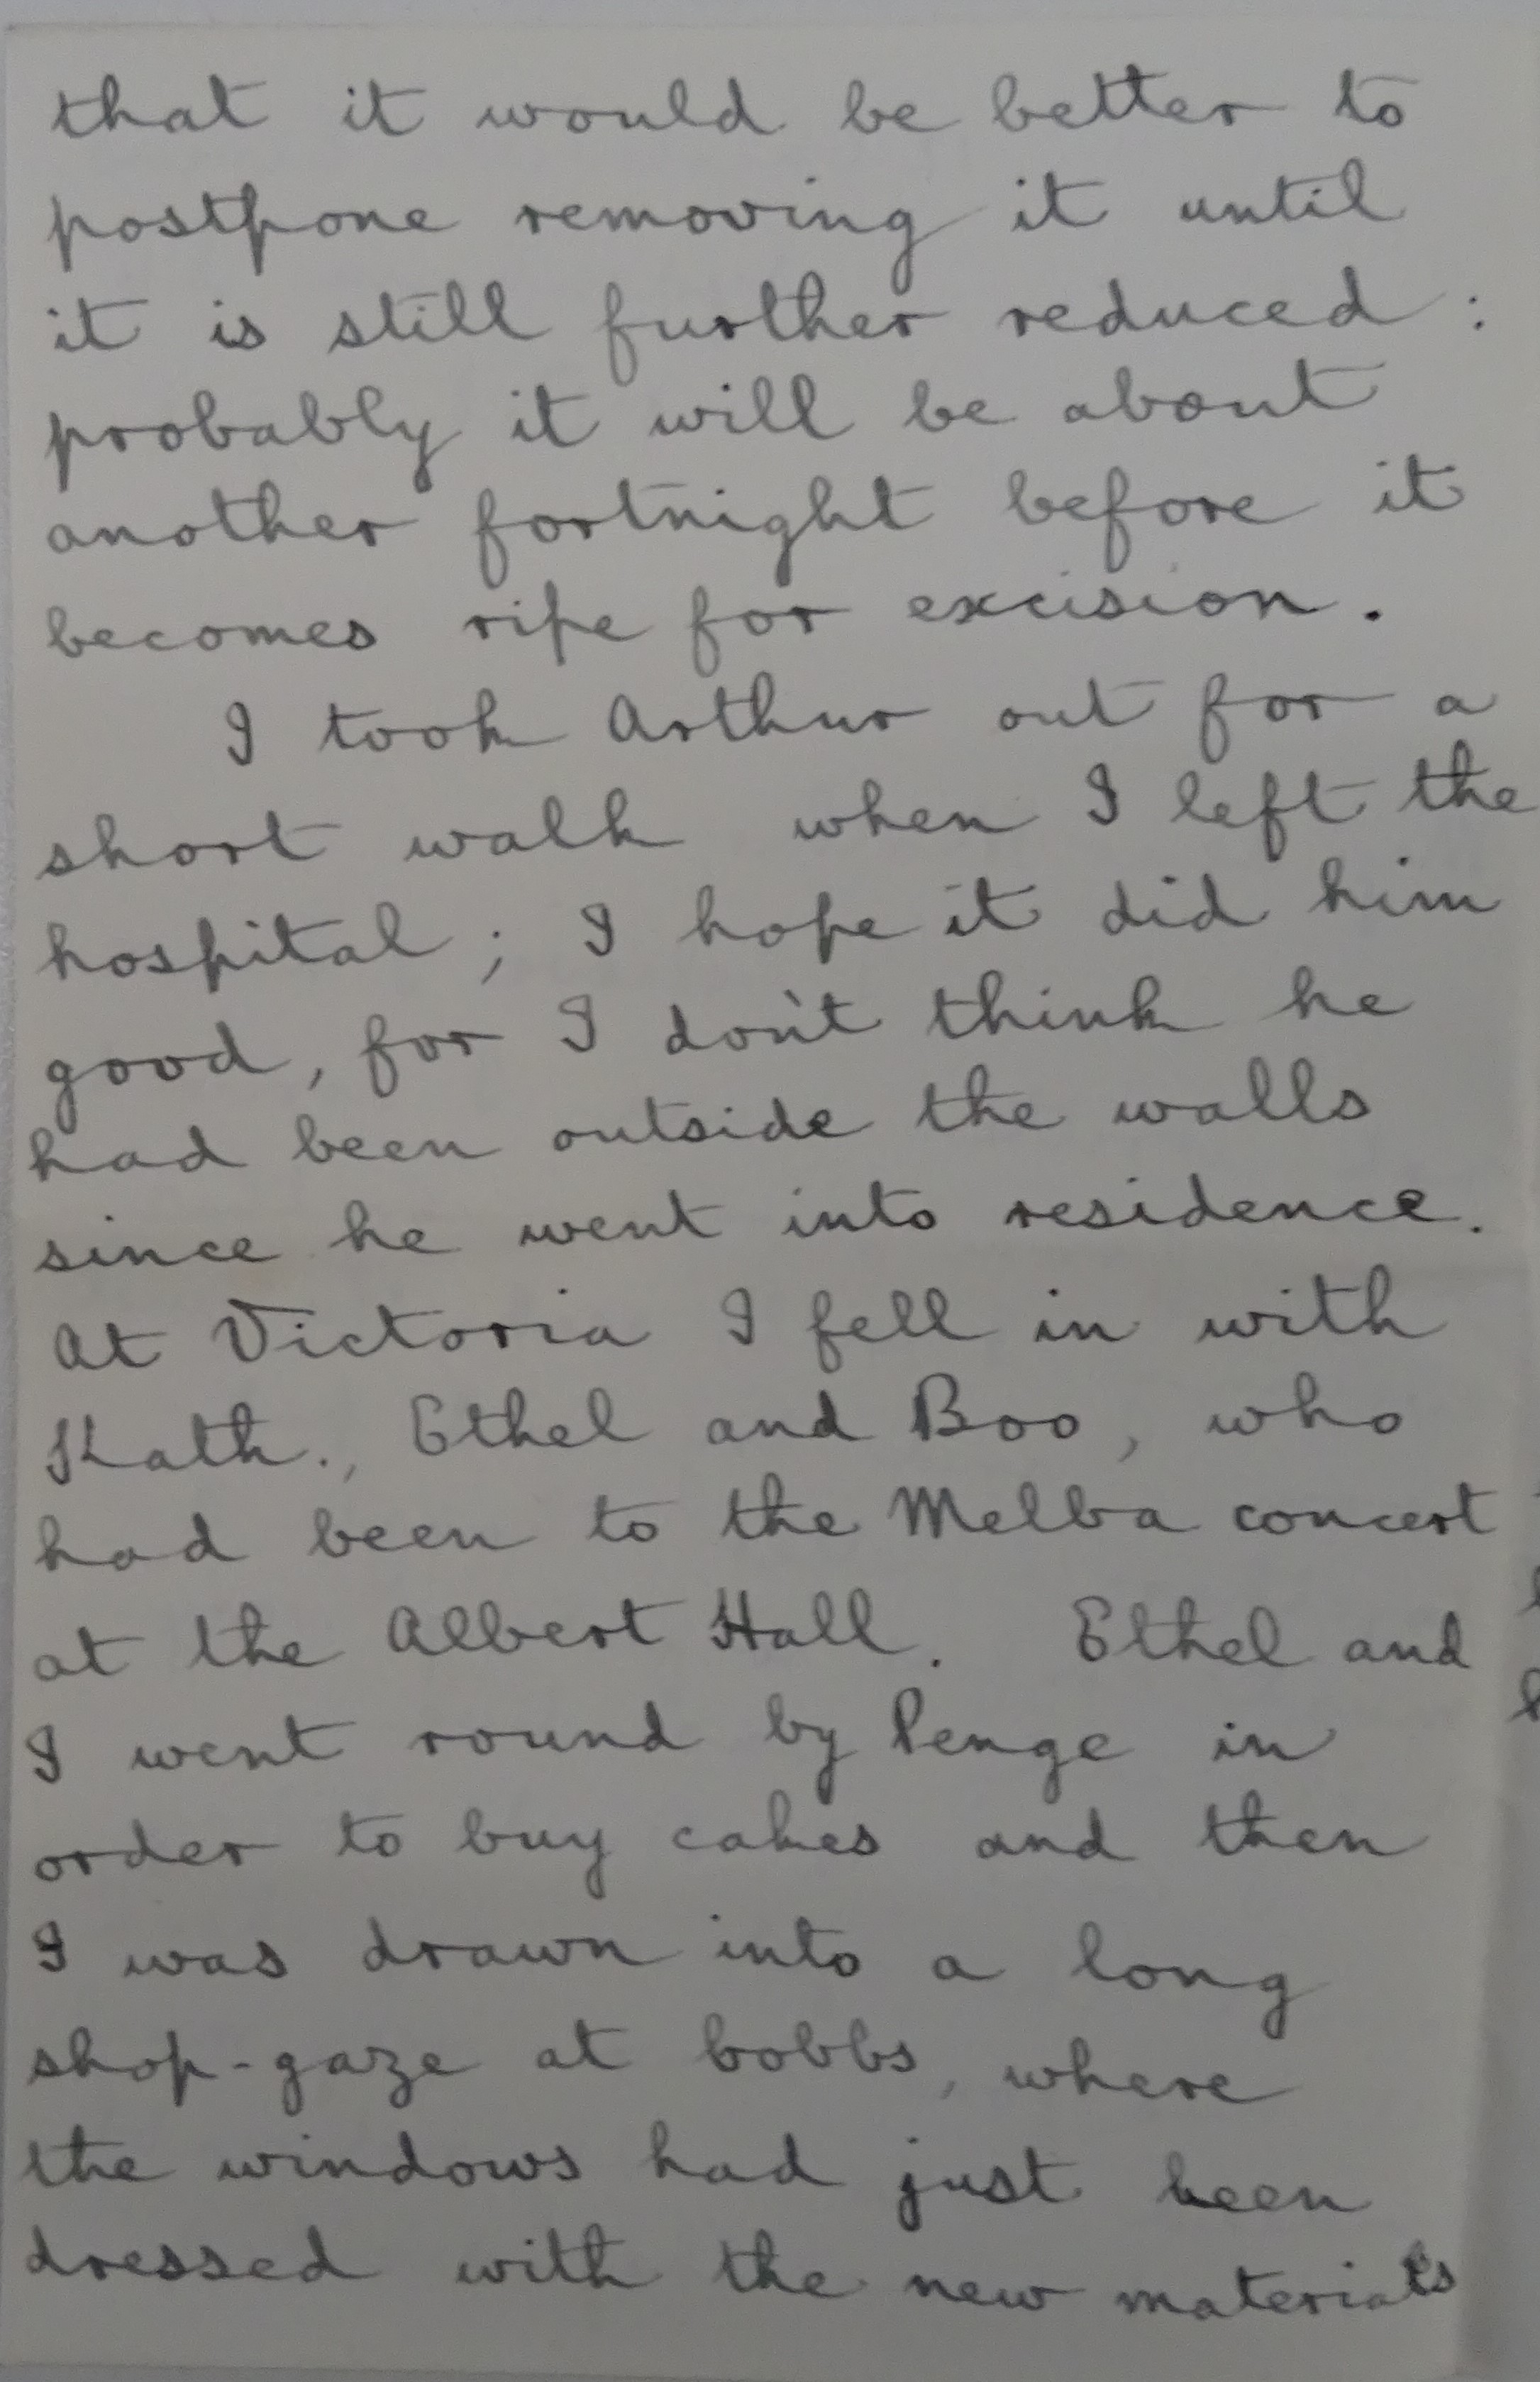 that it would be better to
postpone removing it until
it is still further reduced :
probably it will be about
another fortnight before it
becomes ripe for excision.
I took Arthur out for a
short walk when I left the
hospital ; I hope it did him
good, for I don't think he
had been outside the walls
since he went into residence.
At Victoria I fell in with
Kath., Ethel and Boo, who
had been to the Melba concert
at the Albert Hall. Ethel and
I went round by Penge in
order to buy cakes and then
I was drawn into a long
shop-gaze at bobbs, where
the windows had just been
dressed with the new materials